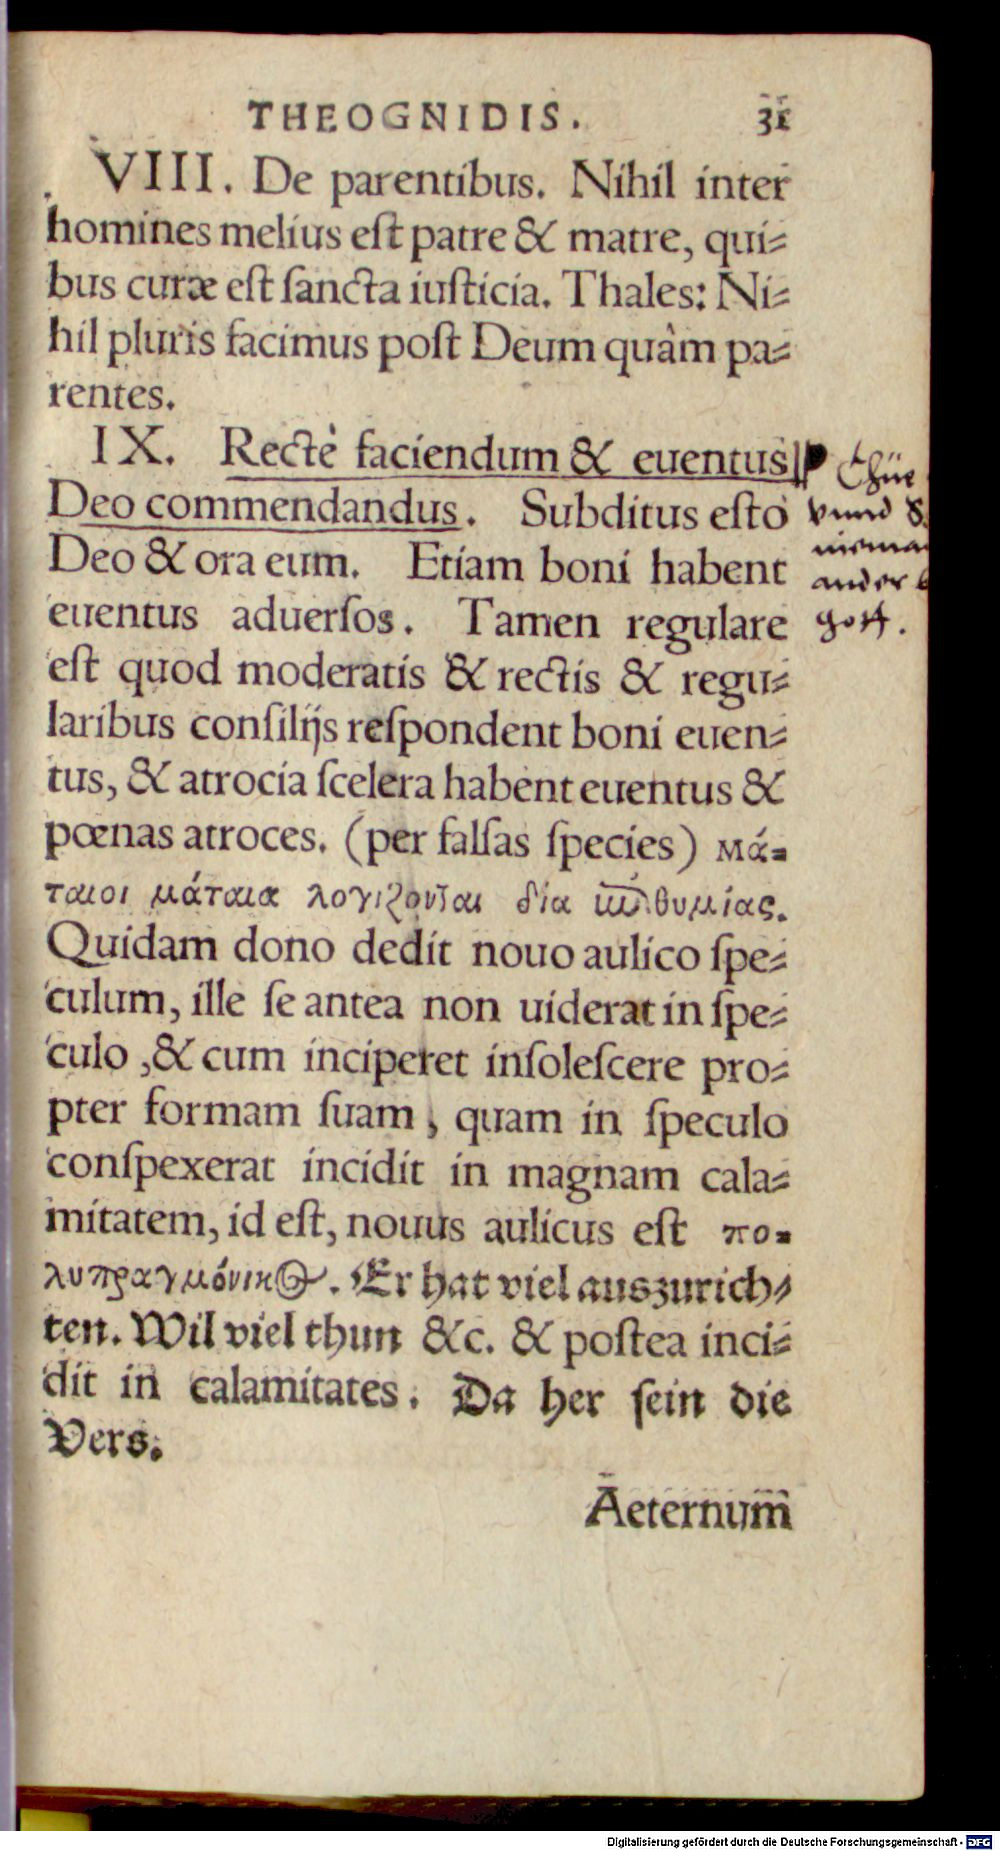 THEOGNIDIS. 31
VIII. De parentibus. Nihil inter
homines melius eſt patre & matre, qui⸗
bus curæ eſt ſancta iuſticia. Thales: Ni⸗
hil pluris facimus poſt Deum quàm pa⸗
rentes.
IX. Rectè faciendum & euentus
Deo commendandus. Subditus eſto
Deo & ora eum. Etiam boni habent
euentus aduerſos. Tamen regulare
eſt quod moderatis & rectis & regu⸗
laribus conſilijs reſpondent boni euen⸗
tus, & atrocia ſcelera habent euentus &
pœnas atroces. (per falſas ſpecies) μά⸗
ταιοι μάταια λογίζονται δία ἐπιθυμίας.
Quidam dono dedit nouo aulico ſpe⸗
culum, ille ſe antea non uiderat in ſpe⸗
culo, & cum inciperet inſoleſcere pro⸗
pter formam ſuam, quam in ſpeculo
conſpexerat incidit in magnam cala⸗
mitatem, id eſt, nouus aulicus eſt πο⸗
λυπραγμόνικος. Er hat viel auszurich⸗
ten. Wil viel thun &c. & poſtea inci⸗
dit in calamitates. Da her ſein die
Vers.
Aeternum
thüe
vnnd
ander
gott.
Digitalisierung gefördert durch die Deutsche Forschungsgemeinschaft - DFG